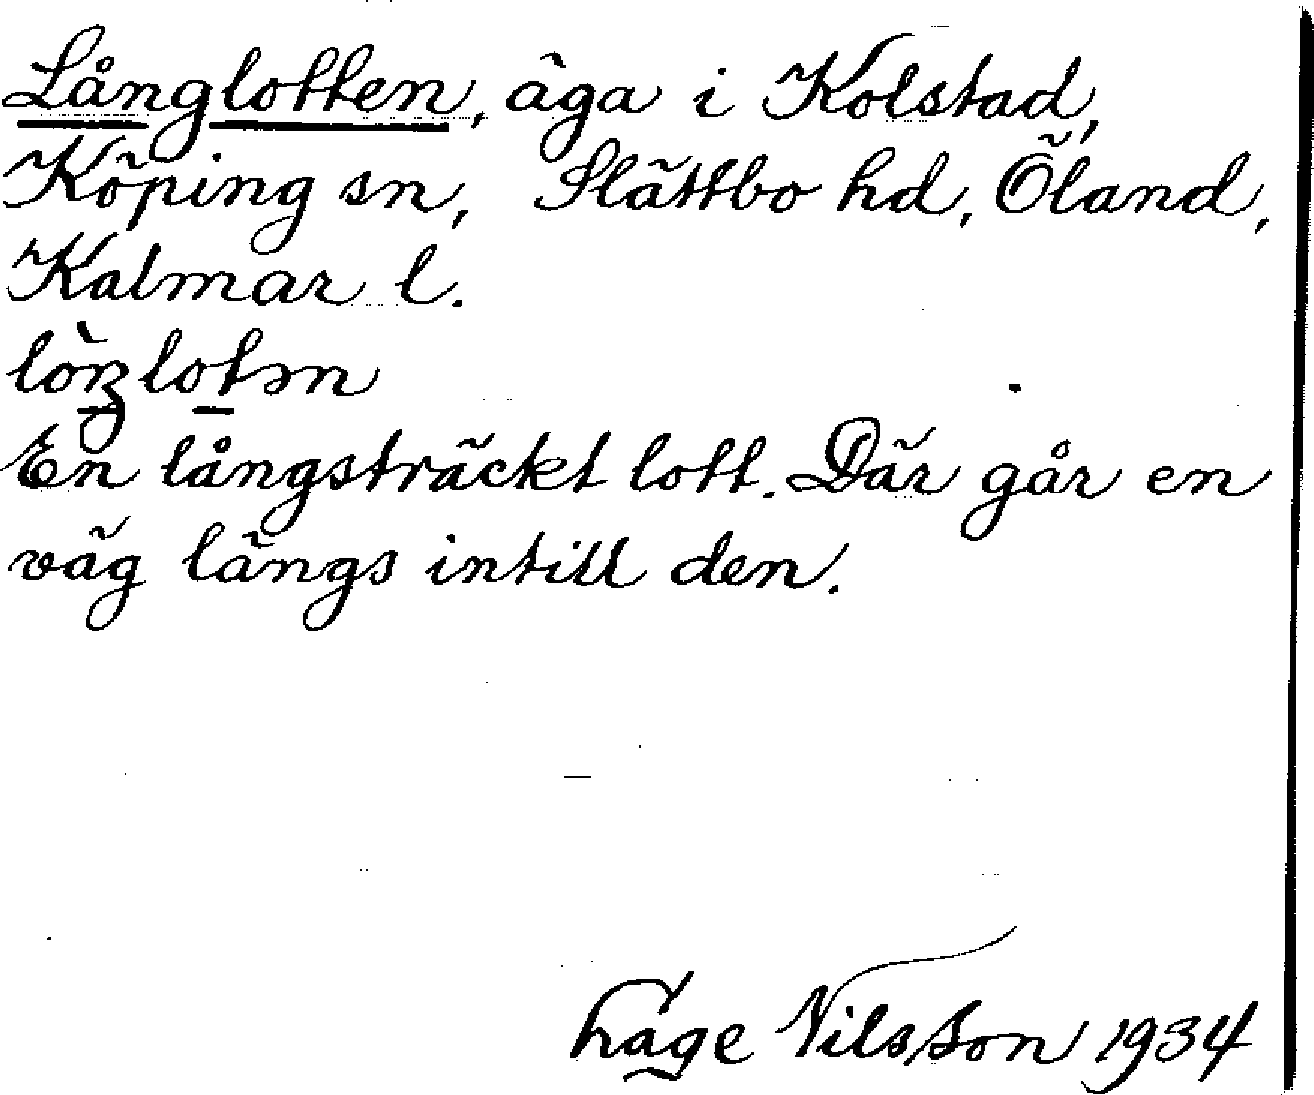 Långlotten, äga i Kolstad,
Köping sn, Slättbo hd, Öland,
Kalmar l.
En långsträckt lott. Där går en
väg längs intill den.
Håge Nilsson 1934